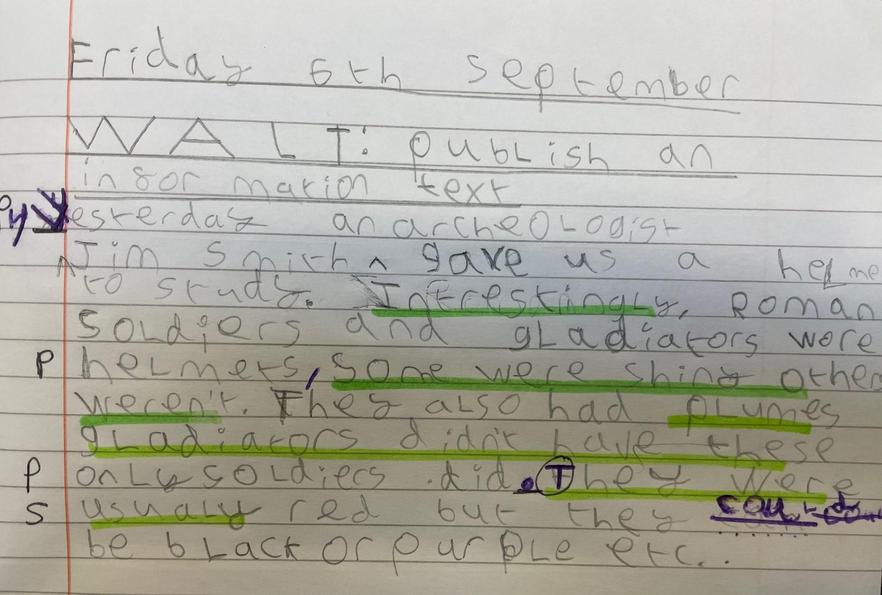 Friday 6th September
WALT: publish an
information text
Yesterday an archeologist
Jim Smith ^ gave us a helme
to study. Intrestingly, Roman
soldiers and gladiators wore
P helmets, some were shiny other
weren't. They also had plumes
gladiators didn't have these
P only soldiers did. They were
S usualy red but they could
be black or purple etc...